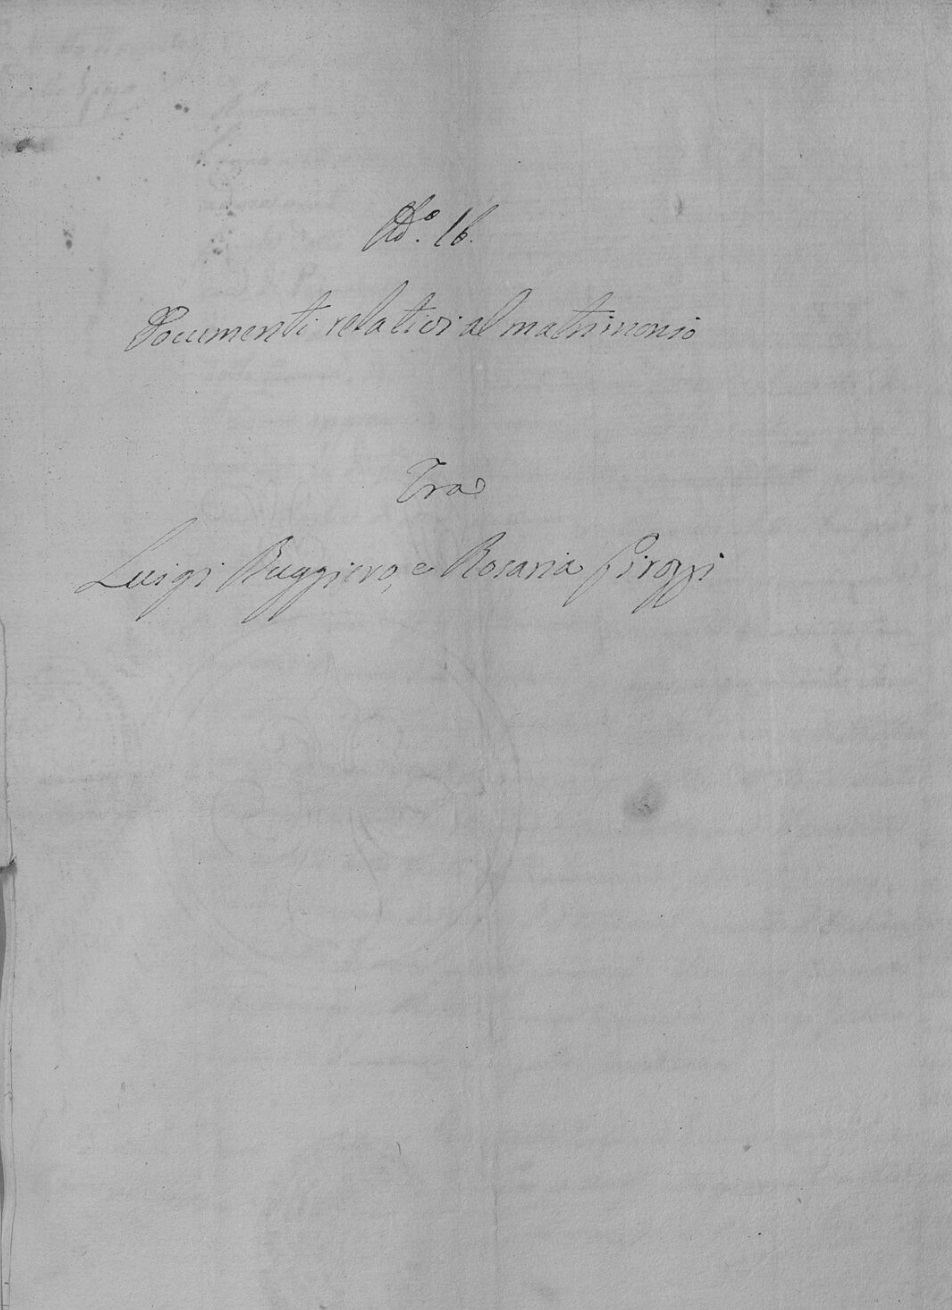 N.º 16.
Documenti relativi al matrimonio
Tra
Luigi Ruggiero, e Rosaria Pirozzi